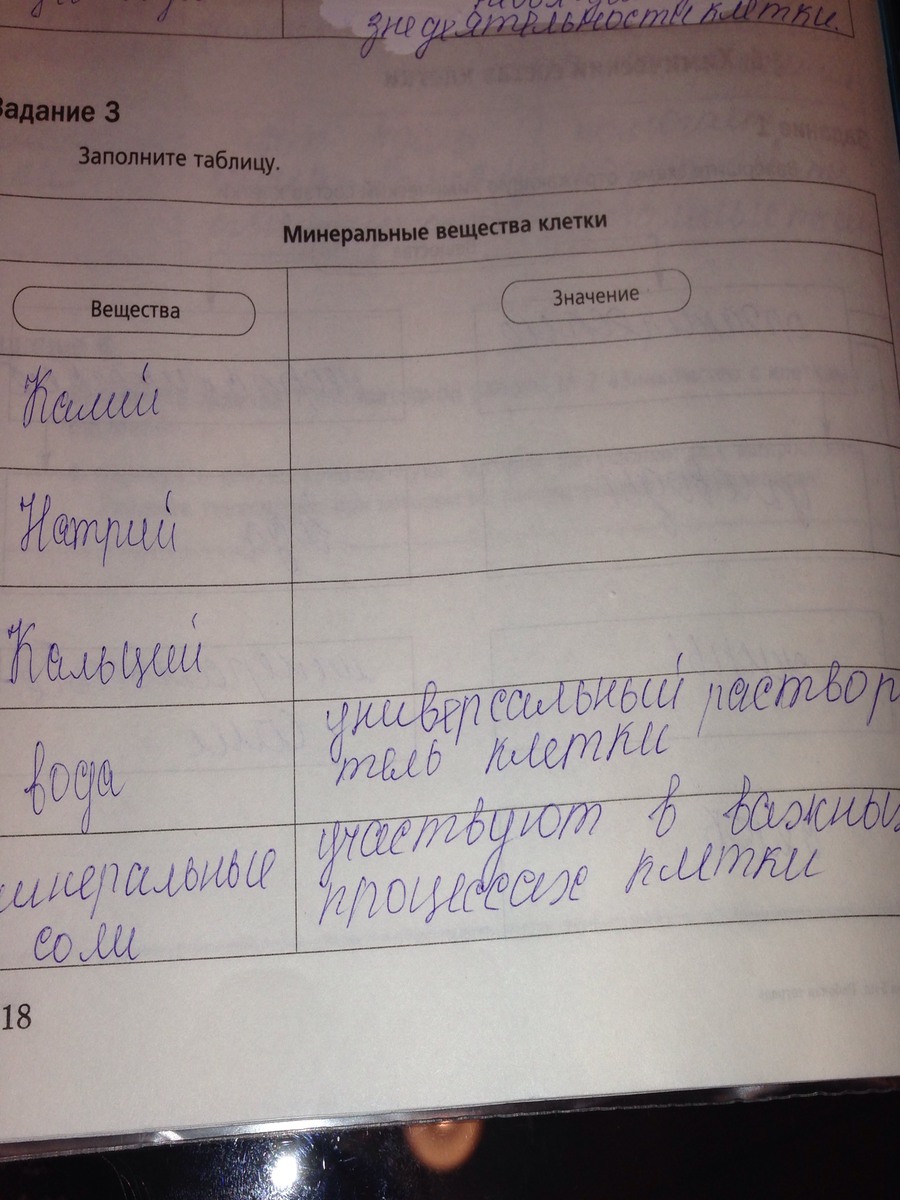 знедеятельности клетки.
Задание 3
Заполните таблицу.
Минеральные вещества клетки
Вещества
Значение
Калий
Натрий
Кальций
вода
универсальный раствор
тель клетки
минеральные
соли
участвуют в важных
процессах клетки
18